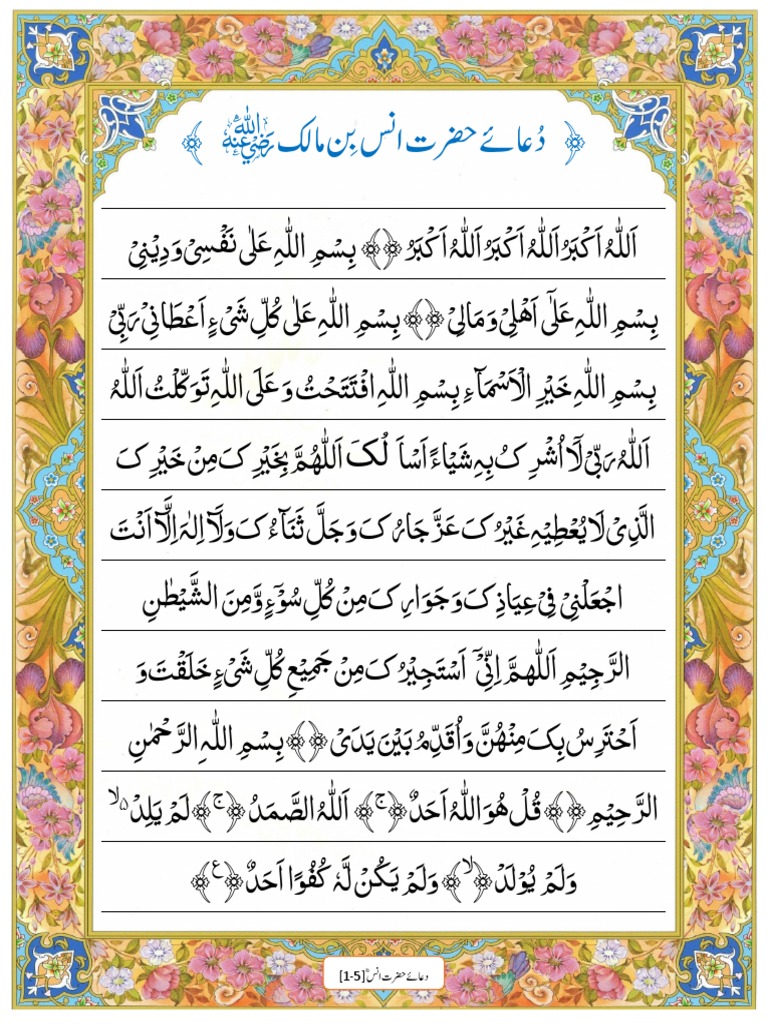 ﴿ دُعائے حضرت انس بِن مالک رَضِيَ اللهُ عَنْهُ ﴾
اَللّٰهُ اَكْبَرُ اَللّٰهُ اَكْبَرُ اَللّٰهُ اَكْبَرُ ﴿﴾ بِسْمِ اللّٰهِ عَلٰى نَفْسِىْ وَدِيْنِىْ
بِسْمِ اللّٰهِ عَلٰٓى اَهْلِىْ وَمَالِىْ ﴿﴾ بِسْمِ اللّٰهِ عَلٰى كُلِّ شَىْءٍ اَعْطَانِىْ رَبِّىْ
بِسْمِ اللّٰهِ خَيْرِ الْاَسْمَآءِ بِسْمِ اللّٰهِ افْتَتَحْتُ وَعَلَى اللّٰهِ تَوَكَّلْتُ اَللّٰهُ
اَللّٰهُ رَبِّىْ لَٓا اُشْرِكُ بِهٖ شَيْاءً اَسْاَلُكَ اَللّٰهُمَّ بِخَيْرِكَ مِنْ خَيْرِكَ
الَّذِىْ لَا يُعْطِيْهِ غَيْرُكَ عَزَّ جَارُكَ وَجَلَّ ثَنَاءُكَ وَلَآ اِلٰهَ اِلَّآ اَنْتَ
اجْعَلْنِىْ فِىْ عِيَاذِكَ وَجَوَارِكَ مِنْ كُلِّ سُوْٓءٍ وَّمِنَ الشَّيْطٰنِ
الرَّجِيْمِ اَللّٰهُمَّ اِنِّىْٓ اَسْتَجِيْرُكَ مِنْ جَمِيْعِ كُلِّ شَىْءٍ خَلَقْتَ وَ
اَحْتَرِسُ بِكَ مِنْهُنَّ وَاُقَدِّمُ بَيْنَ يَدَىَّ ﴿﴾ بِسْمِ اللّٰهِ الرَّحْمٰنِ
الرَّحِيْمِ ﴿﴾ قُلْ هُوَ اللّٰهُ اَحَدٌ ﴿ج﴾ اَللّٰهُ الصَّمَدُ ﴿ج﴾ لَمْ يَلِدْ ۵ لا
وَلَمْ يُوْلَدْ ﴿لا﴾ وَلَمْ يَكُنْ لَّهٗ كُفُوًا اَحَدٌ ﴿ع﴾
دعائے حضرت انسؓ [1-5]